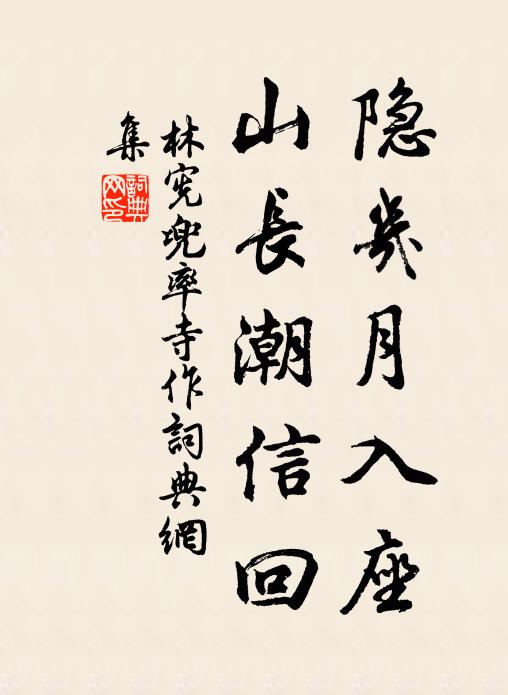 隐幾月入座
山長潮信回
林宪兜率寺作詞典網
集
詞典
网印